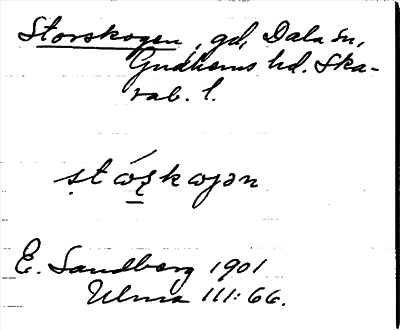 Storskogen, gd, Dala sn,
Gudhems hd. Ska-
rab. l.
E. Sandberg 1901
Ulma 111:66.